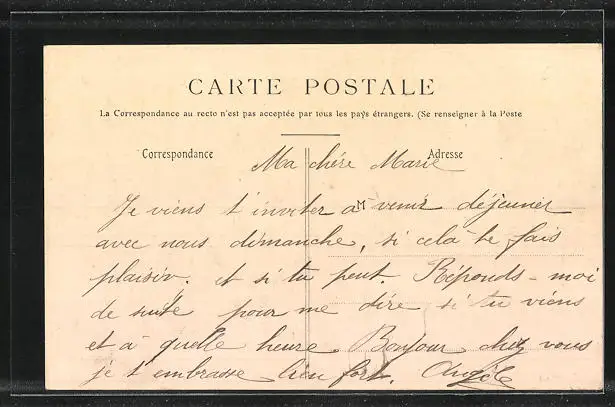 CARTE POSTALE
La Correspondance au recto n'est pas acceptée par tous les pays étrangers. (Se renseigner à la Poste
Correspondance
Adresse
Ma chére Marie
M
Je viens t'inviter a venir déjeuner
avec nous dimanche, si cela te fais
plaisir. et si tu peut. Réponds-moi
de suite pour me dire si tu viens
et à quelle heure. Bonjour chez vous
je t'embrasse bien fort. Angèle